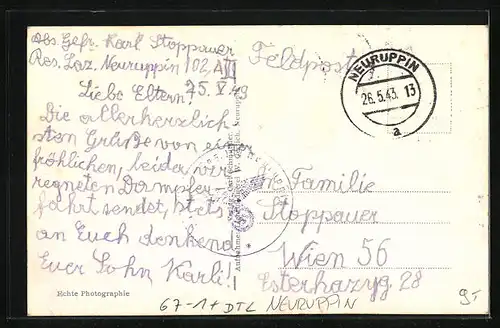 Abs. Gefr. Karl Stoppauer
Res. Laz. Neuruppin 102, A VII
25. V. 43
Liebe Eltern!
Die allerherzlich
sten Grüße von einer
fröhlichen, leider ver
regneten Dampfer-
fahrt sendet, stets
an Euch denkend
Euer Sohn Karli!
Echte Photographie
Feldpost
NEURUPPIN
26.5.43. 13
a
Familie
Stoppauer
Wien 56
Esterhazyg 28
67-1+DTL NEURUPPIN
9,-